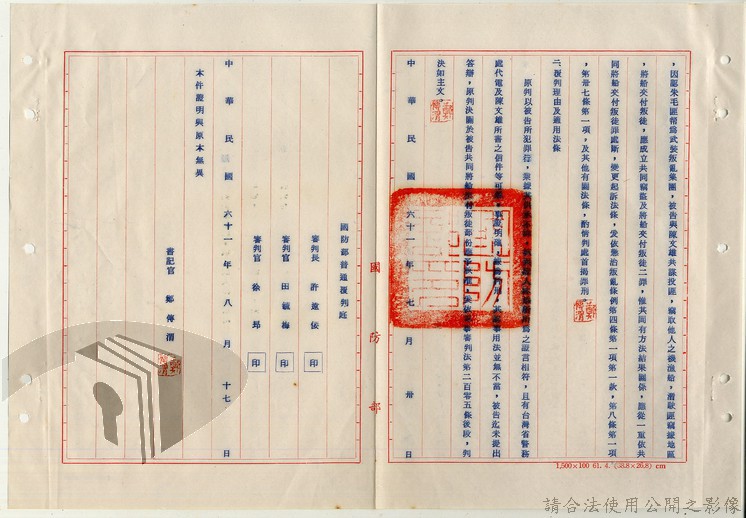 ，因認朱毛匪幫為武裝叛亂集團，被告與陳文雄共謀投匪，竊取他人之機漁船，潛駛匪竊據地區
，將船交付叛徒，應成立共同竊盜及將船交付叛徒二罪，惟其間有方法結果關係，應從一重依共
同將船交付叛徒罪處斷，變更起訴法條，爰依懲治叛亂條例第四條第一項第一款，第八條第一項
，第卅七條第一項，及其他有關法條，酌情判處首揭罪刑。
二、覆判理由及適用法條
原判以被告所犯罪行，業據其 之證言相符，且有台灣省警務
處代電及陳文雄所書之信件等可 事用法並無不當，被告迄未提出
答辯，原判決關於被告共同將船 審判法第二百零五條後段，判
決如主文。
中華民國六十一年七月卅日
國防部
國防部普通覆判庭
審判長 許
審判官 田 梅 印
審判官 徐 昂 印
中華民國六十一年八月十七日
本件證明與原本無異
書記官 鄭傳
1,500×100 61. 4. (38.8×26.8) cm
請合法使用公開之影像